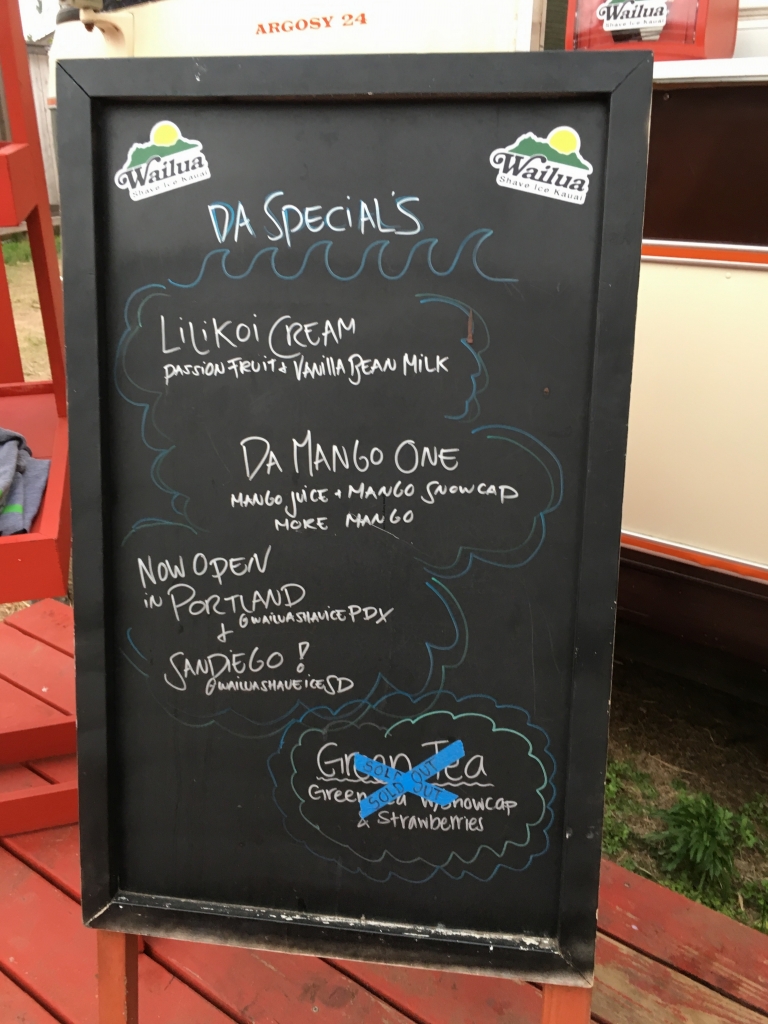 ARGOSY 24
Wailua
Wailua
Shave Ice Kauai
Wailua
Shave Ice Kauai
DA SPECIAL'S
LILIKOI CREAM
PASSION FRUIT + VANILLA BEAN MILK
DA MANGO ONE
MANGO JUICE + MANGO SNOWCAP
MORE MANGO
NOW OPEN
IN PORTLAND
@WAILUASHAVICEPDX
+
SANDIEGO!
@WAILUASHAVEICESD
Green Tea
SOLD OUT
SOLD OUT
Green Tea w/Snowcap
& Strawberries